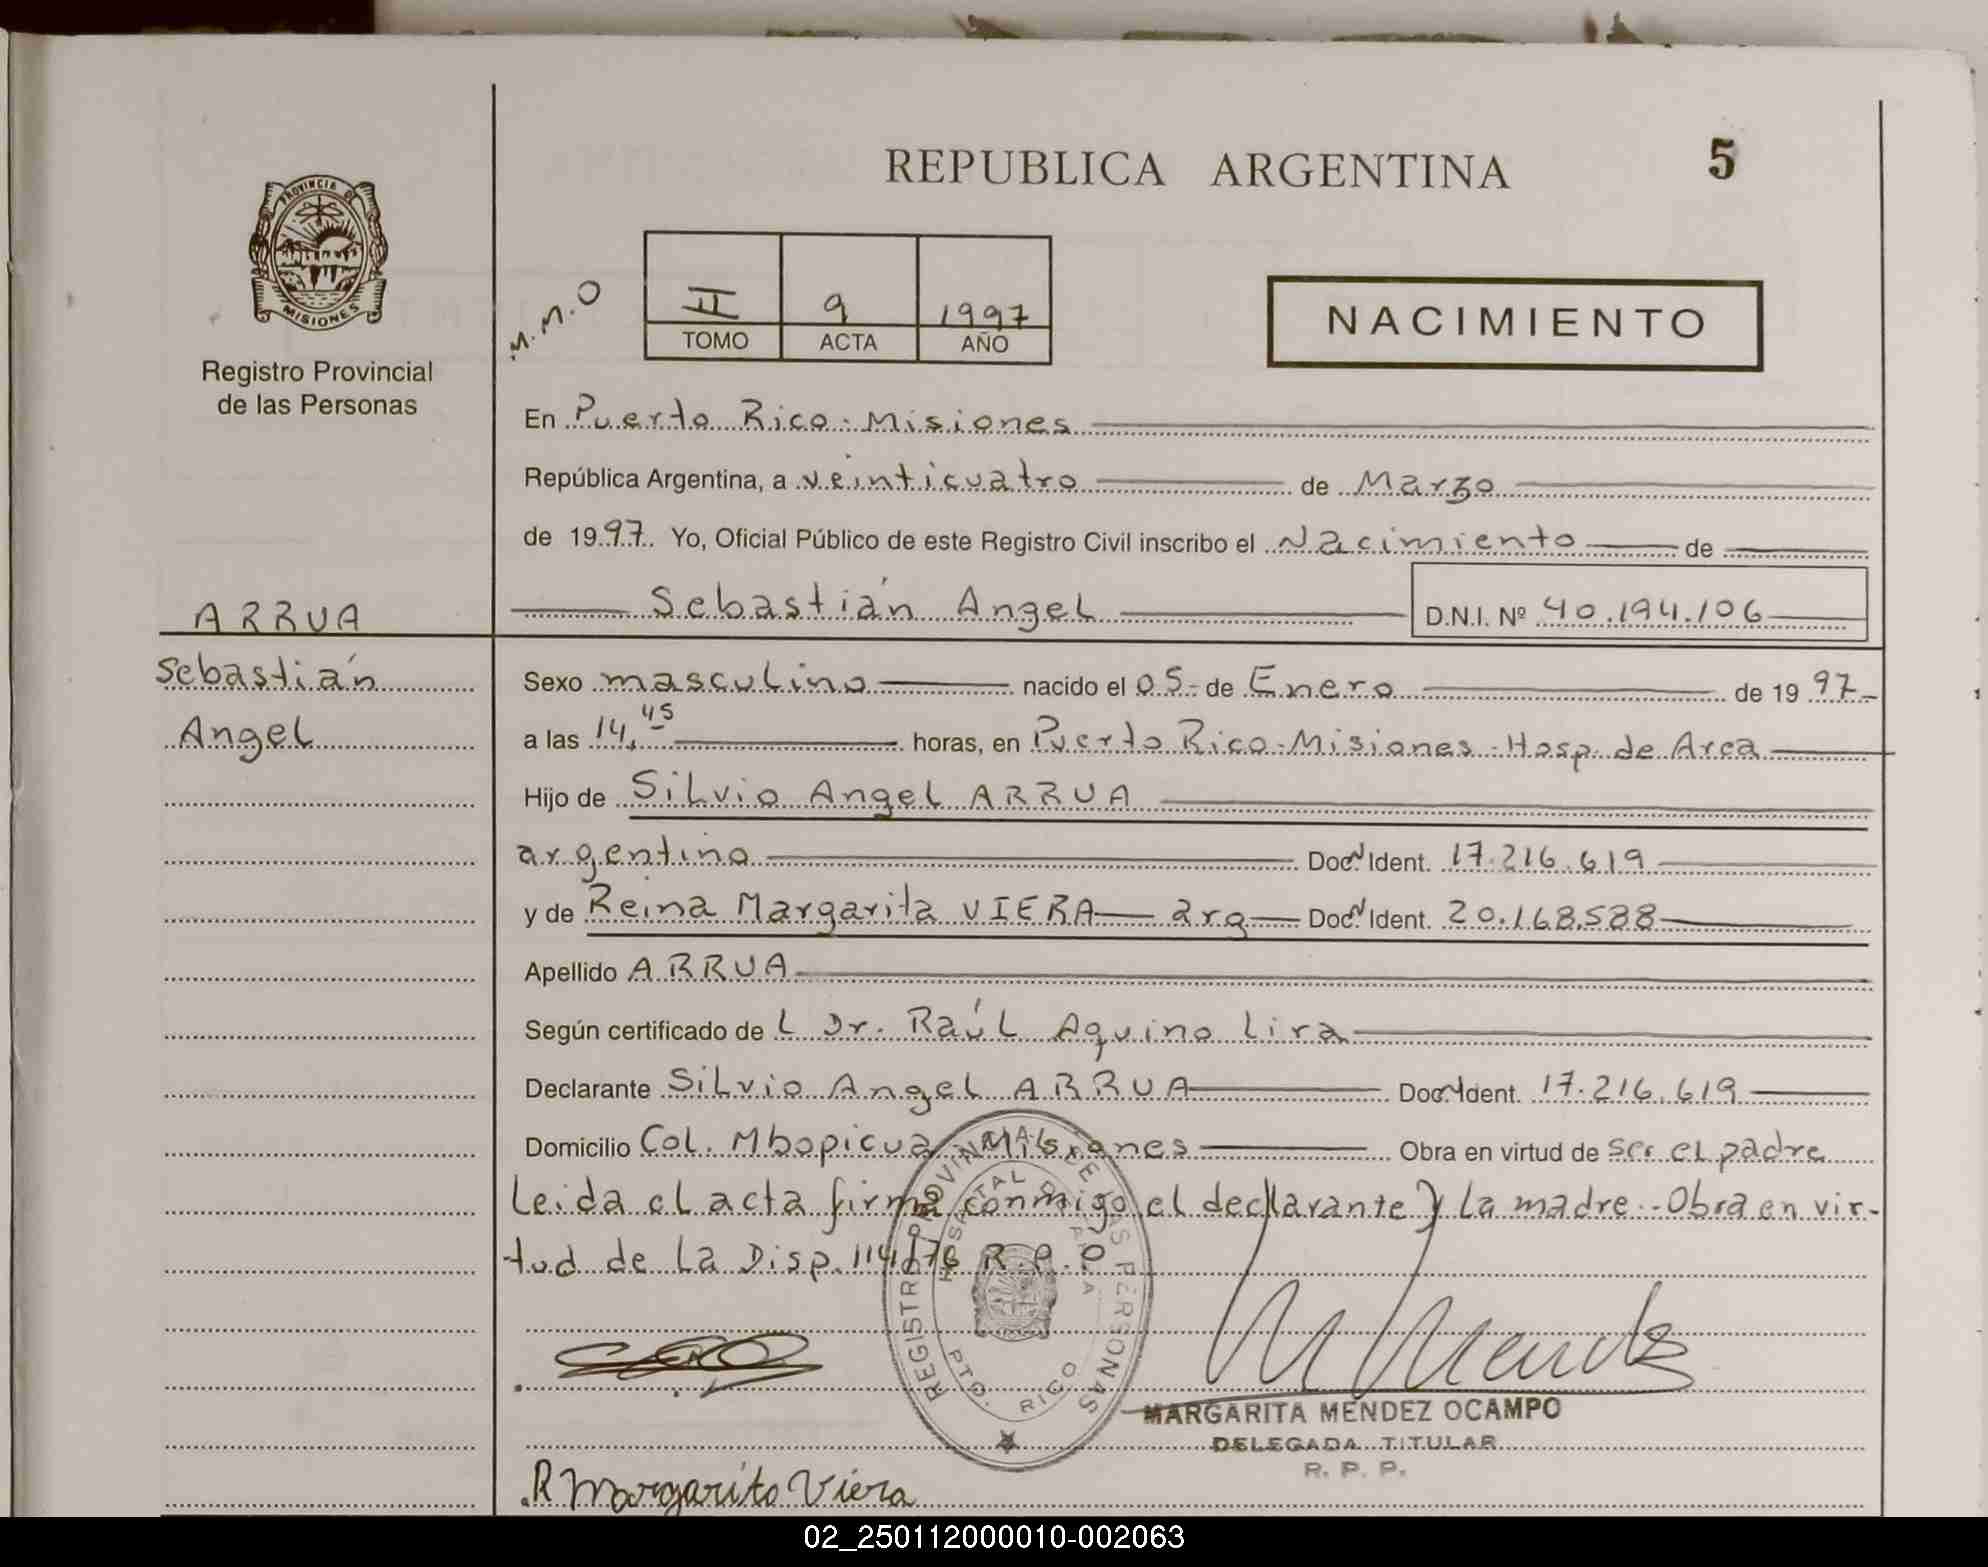 REPUBLICA ARGENTINA
5
PROVINCIA DE
MISIONES
Registro Provincial
de las Personas
M.M.O
II 9 1997
TOMO ACTA AÑO
NACIMIENTO
En Puerto Rico - Misiones
República Argentina, a veinticuatro de Marzo
de 1997. Yo, Oficial Público de este Registro Civil inscribo el Nacimiento de
Sebastián Angel D.N.I. Nº 40.194.106
ARRUA
Sebastián
Angel
Sexo masculino nacido el 05- de Enero de 19 97-
a las 14,45 horas, en Puerto Rico - Misiones - Hosp. de Area
Hijo de Silvio Angel ARRUA
argentino Doc. N Ident. 17.216.619
y de Reina Margarita VIERA arg Doc. N Ident. 20.168.588
Apellido ARRUA
Según certificado de L Dr. Raúl Aquino Lira
Declarante Silvio Angel ARRUA Doc. N Ident. 17.216.619
Domicilio Col. Mbopicua - Misiones Obra en virtud de ser el padre
Leida el acta firma conmigo el declarante y la madre.- Obra en vir-
tud de la Disp. 114/76 R.P.P
REGISTRO PROVINCIAL DE LAS PERSONAS
HOSPITAL DE AREA
PTO. RICO
M Mendez
MARGARITA MENDEZ OCAMPO
DELEGADA TITULAR
R. P. P.
R Margarita Viera
02_250112000010-002063